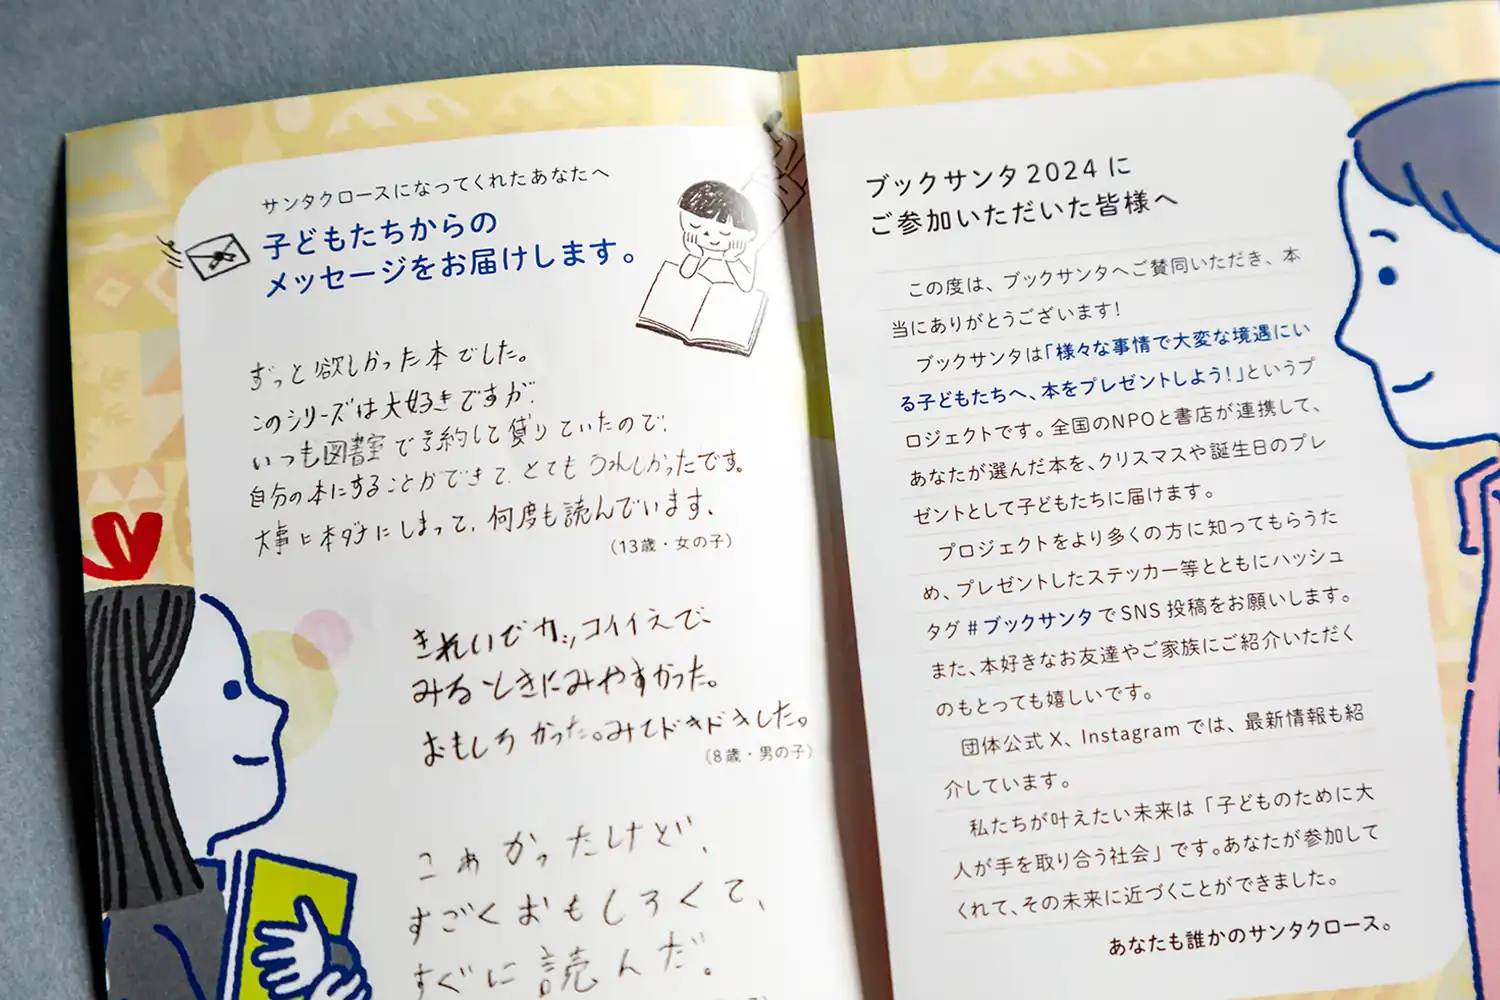 サンタクロースになってくれたあなたへ
子どもたちからの
メッセージをお届けします。
ずっと欲しかった本でした。
このシリーズは大好きですが、
いつも図書室で予約して貸りていたので、
自分の本にすることができて、とてもうれしかったです。
大事に本ダナにしまって、何度も読んでいます、
(13歳・女の子)
きれいでカッコイイえで、
みるときにみやすかった。
おもしろかった。みてドキドキした。
(8歳・男の子)
こわかったけど、
すごくおもしろくて、
すぐに読んだ。
ブックサンタ2024に
ご参加いただいた皆様へ
この度は、ブックサンタへご賛同いただき、本
当にありがとうございます!
ブックサンタは「様々な事情で大変な境遇にい
る子どもたちへ、本をプレゼントしよう!」というプ
ロジェクトです。全国のNPOと書店が連携して、
あなたが選んだ本を、クリスマスや誕生日のプレ
ゼントとして子どもたちに届けます。
プロジェクトをより多くの方に知ってもらうた
め、プレゼントしたステッカー等とともにハッシュ
タグ#ブックサンタでSNS投稿をお願いします。
また、本好きなお友達やご家族にご紹介いただく
のもとっても嬉しいです。
団体公式X、Instagramでは、最新情報も紹
介しています。
私たちが叶えたい未来は「子どものために大
人が手を取り合う社会」です。あなたが参加して
くれて、その未来に近づくことができました。
あなたも誰かのサンタクロース。